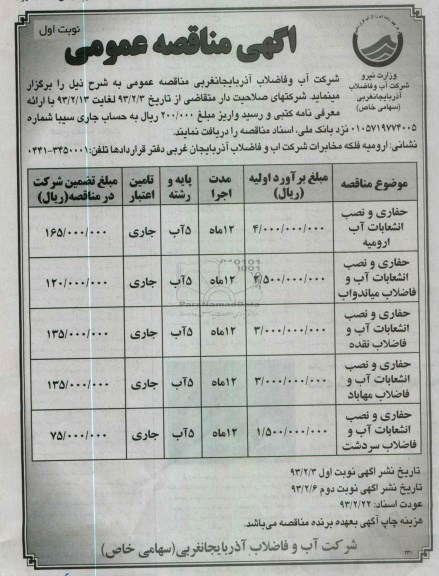 نوبت اول
آگهی مناقصه عمومی
وزارت نیرو
شرکت آب وفاضلاب
آذربایجانغربی
(سهامی خاص)
شرکت آب وفاضلاب آذربایجانغربی مناقصه عمومی به شرح ذیل را برگزار
مینماید. شرکتهای صلاحیت دار متقاضی از تاریخ ۹۳/۲/۳ لغایت ۹۳/۲/۱۳ با ارائه
معرفی نامه کتبی و رسید واریز مبلغ ۲۰۰/۰۰۰ ریال به حساب جاری سیبا شماره
۰۱۰۵۷۱۹۷۷۴۰۰۵ نزد بانک ملی، اسناد مناقصه را دریافت نمایند.
نشانی: ارومیه فلکه مخابرات شرکت اب و فاضلاب آذربایجان غربی دفتر قراردادها تلفن: ۳۴۵۰۰۰۱-۰۴۴۱
موضوع مناقصه | مبلغ برآورد اولیه (ریال) | مدت اجرا | پایه و رشته | تامین اعتبار | مبلغ تضمین شرکت در مناقصه (ریال)
حفاری و نصب انشعابات آب ارومیه | ۴/۰۰۰/۰۰۰/۰۰۰ | ۱۲ماه | ۵آب | جاری | ۱۶۵/۰۰۰/۰۰۰
حفاری و نصب انشعابات آب و فاضلاب میاندواب | ۲/۵۰۰/۰۰۰/۰۰۰ | ۱۲ماه | ۵آب | جاری | ۱۲۰/۰۰۰/۰۰۰
حفاری و نصب انشعابات آب و فاضلاب نقده | ۳/۰۰۰/۰۰۰/۰۰۰ | ۱۲ماه | ۵آب | جاری | ۱۳۵/۰۰۰/۰۰۰
حفاری و نصب انشعابات آب و فاضلاب مهاباد | ۳/۰۰۰/۰۰۰/۰۰۰ | ۱۲ماه | ۵آب | جاری | ۱۳۵/۰۰۰/۰۰۰
حفاری و نصب انشعابات آب و فاضلاب سردشت | ۱/۵۰۰/۰۰۰/۰۰۰ | ۱۲ماه | ۵آب | جاری | ۷۵/۰۰۰/۰۰۰
ParsNamadData
تاریخ نشر اگهی نوبت اول ۹۳/۲/۳
تاریخ نشر اگهی نوبت دوم ۹۳/۲/۶
عودت اسناد: ۹۳/۲/۲۲
هزینه چاپ آگهی بعهده برنده مناقصه می‌باشد.
شرکت آب و فاضلاب آذربایجانغربی (سهامی خاص)